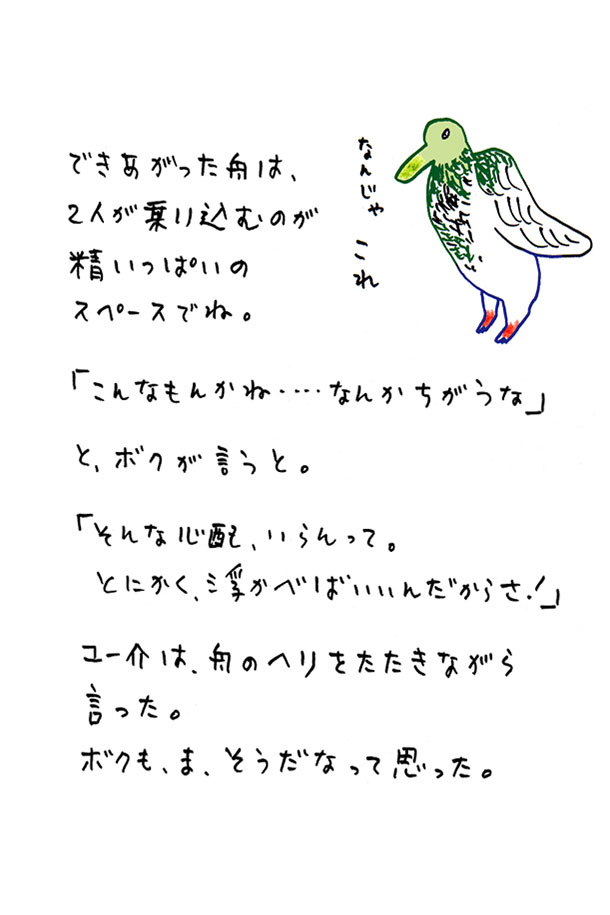 できあがった舟は、
2人が乗り込むのが
精いっぱいの
スペースでね。
なんじゃ
これ
「こんなもんかね‥‥なんかちがうな」
と、ボクが言うと。
「そんな心配、いらんって。
とにかく、浮かべばいいんだからさ!」
ユー介は、舟のヘリをたたきながら
言った。
ボクも、ま、そうだなって思った。